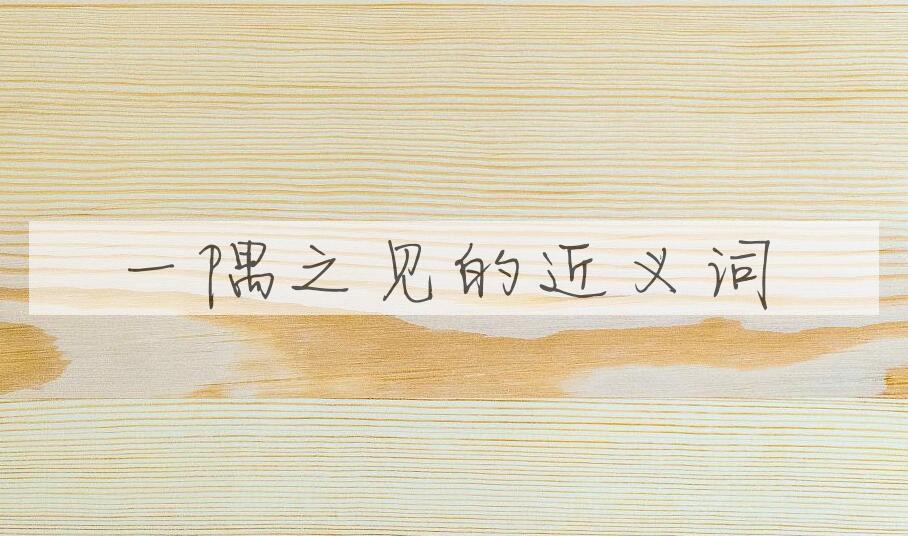 一隅之见的近义词